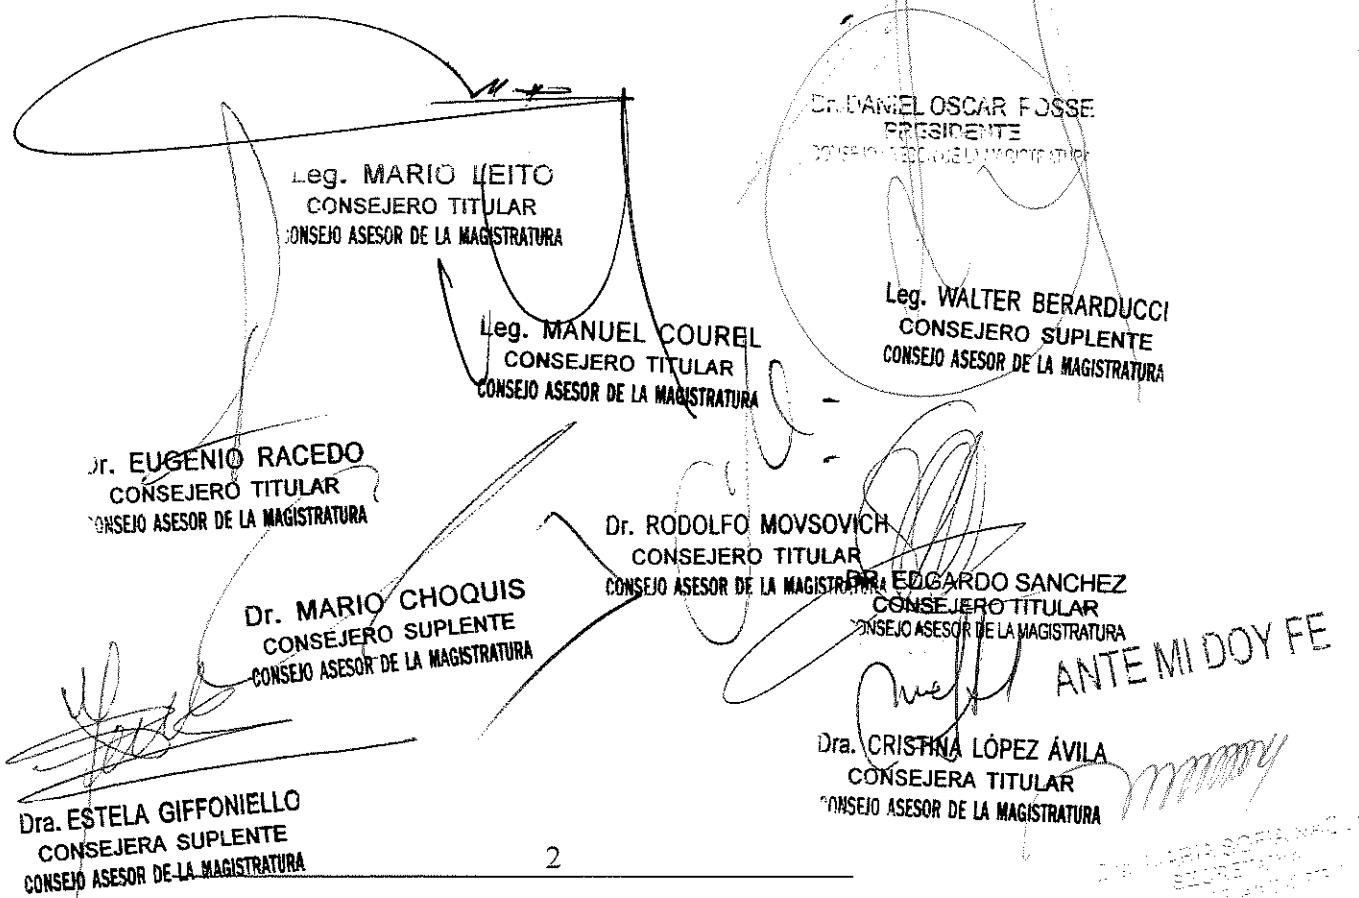 Dr. DANIEL OSCAR POSSE
PRESIDENTE
Leg. MARIO LEITO
CONSEJERO TITULAR
CONSEJO ASESOR DE LA MAGISTRATURA
Leg. WALTER BERARDUCCI
CONSEJERO SUPLENTE
CONSEJO ASESOR DE LA MAGISTRATURA
Leg. MANUEL COUREL
CONSEJERO TITULAR
CONSEJO ASESOR DE LA MAGISTRATURA
Dr. EUGENIO RACEDO
CONSEJERO TITULAR
CONSEJO ASESOR DE LA MAGISTRATURA
Dr. RODOLFO MOVSOVICH
CONSEJERO TITULAR
CONSEJO ASESOR DE LA MAGISTRATURA
DR. EDGARDO SANCHEZ
CONSEJERO TITULAR
CONSEJO ASESOR DE LA MAGISTRATURA
Dr. MARIO CHOQUIS
CONSEJERO SUPLENTE
CONSEJO ASESOR DE LA MAGISTRATURA
ANTE MI DOY FE
Dra. CRISTINA LÓPEZ ÁVILA
CONSEJERA TITULAR
CONSEJO ASESOR DE LA MAGISTRATURA
Dra. ESTELA GIFFONIELLO
CONSEJERA SUPLENTE
CONSEJO ASESOR DE LA MAGISTRATURA
MARIA SOFIA
SECRETARIA
2